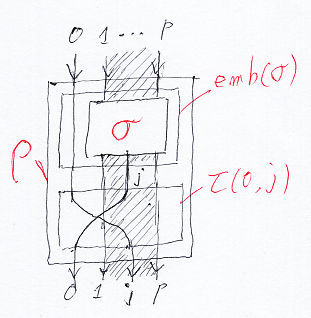 0 1 ... p
emb(σ)
σ
ρ
j
τ(0,j)
0 1 j p